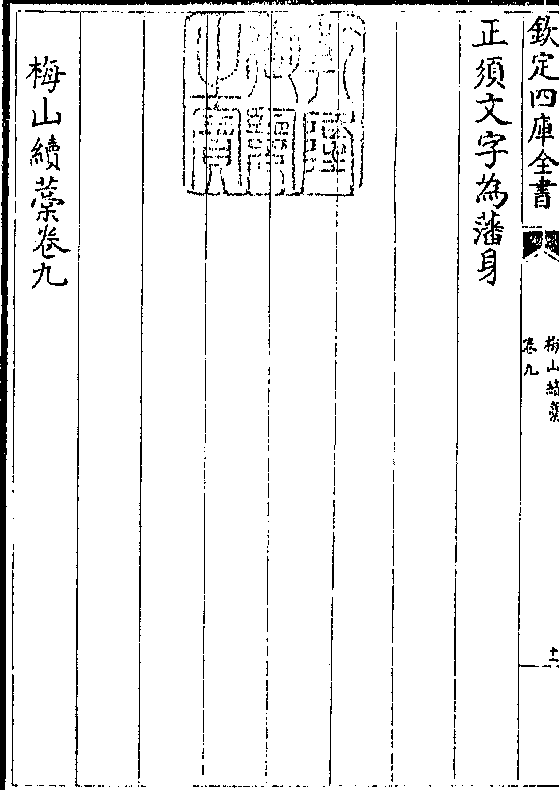 欽定四庫全書
梅山續藁
卷九
十一
正須文字為藩身
梅山續藁卷九